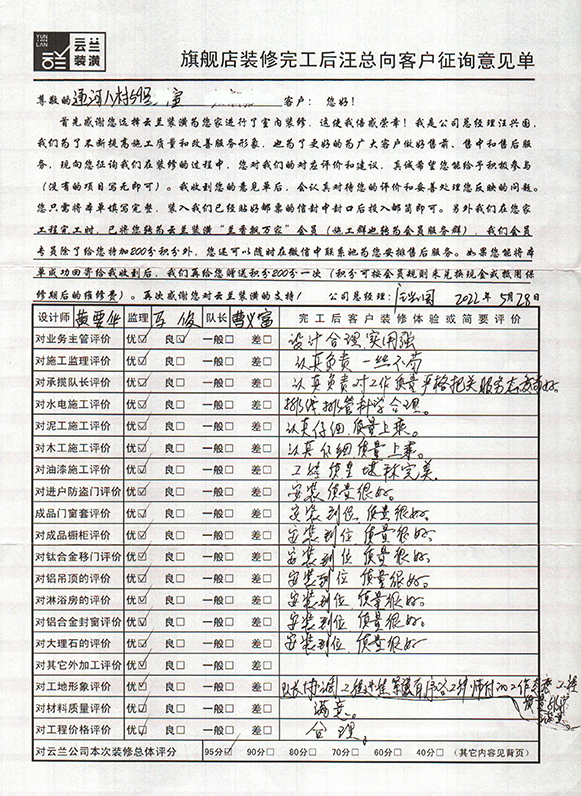 YUN LAN
云兰装潢
旗舰店装修完工后汪总向客户征询意见单
尊敬的 通河八村 客户：您好！
首先感谢您选择云兰装潢为您家进行了室内装修，这使我倍感荣幸！我是公司总经理汪兴国，
我们为了不断提高施工质量和改善服务形象，也为了更好的为广大客户做好售前、售中和售后服
务，现向您征询我们在装修的过程中，您对我们的对应评价和建议，真诚希望您能给予积极参与
（没有的项目写无即可）。我收到您的意见单后，会认真对待您的评价和妥善处理您反映的问题。
您只需将本单填写完整，装入我们已经贴好邮票的信封中封口后投入邮筒即可。另外我们在您家
工程完工时，已将您转为云兰装潢“兰香飘万家”会员（施工群也转为会员服务群），我们会员
专员除了给您特加200分积分外，您还可以随时在微信中联系她为您安排售后服务。如果您能将本
单成功回寄给我收到后，我们再给您赠送积分200分一次（积分可按会员规则来兑换现金或抵用保
修期后的维修费）。再次感谢您对云兰装潢的支持！ 公司总经理：汪兴国 2022年5月28日
设计师 黄 华 监理 俊 队长 曹义富 完工后客户装修体验或简要评价
对业务主管评价 优☑ 良☑ 一般□ 差□ 设计合理实用强
对施工监理评价 优☑ 良□ 一般□ 差□ 认真负责 一丝不苟
对承揽队长评价 优☑ 良□ 一般□ 差□ 认真负责对工作质量严格把关服务态度好。
对水电施工评价 优☑ 良□ 一般□ 差□ 排线排管科学合理。
对泥工施工评价 优☑ 良□ 一般□ 差□ 认真仔细，质量上乘。
对木工施工评价 优☑ 良□ 一般□ 差□ 认真仔细质量上乘。
对油漆施工评价 优☑ 良□ 一般□ 差□ 工结质量堪称完美
对进户防盗门评价 优☑ 良□ 一般□ 差□ 安装质量很好。
成品门窗套评价 优☑ 良□ 一般□ 差□ 安装到位，质量很好。
对成品橱柜评价 优☑ 良□ 一般□ 差□ 安装到位 质量很好。
对钛合金移门评价 优☑ 良□ 一般□ 差□ 安装到位 质量很好。
对铝吊顶的评价 优☑ 良□ 一般□ 差□ 安装到位 质量很好。
对淋浴房的评价 优☑ 良□ 一般□ 差□ 安装到位 质量很好。
对铝合金封窗评价 优☑ 良□ 一般□ 差□ 安装到位，质量很好。
对大理石的评价 优☑ 良□ 一般□ 差□ 安装到位，质量很好
对其它外加工评价 优□ 良□ 一般□ 差□
对工地形象评价 优☑ 良□ 一般□ 差□ 队长 工程 有序 工作 工程
质量
满意
对材料质量评价 优☑ 良□ 一般□ 差□ 满意。
对工程价格评价 优☑ 良□ 一般□ 差□ 合理。
对云兰公司本次装修总体评分 95分☑ 90分□ 80分□ 70分□ 60分□ 40分□ （其它内容见背页）